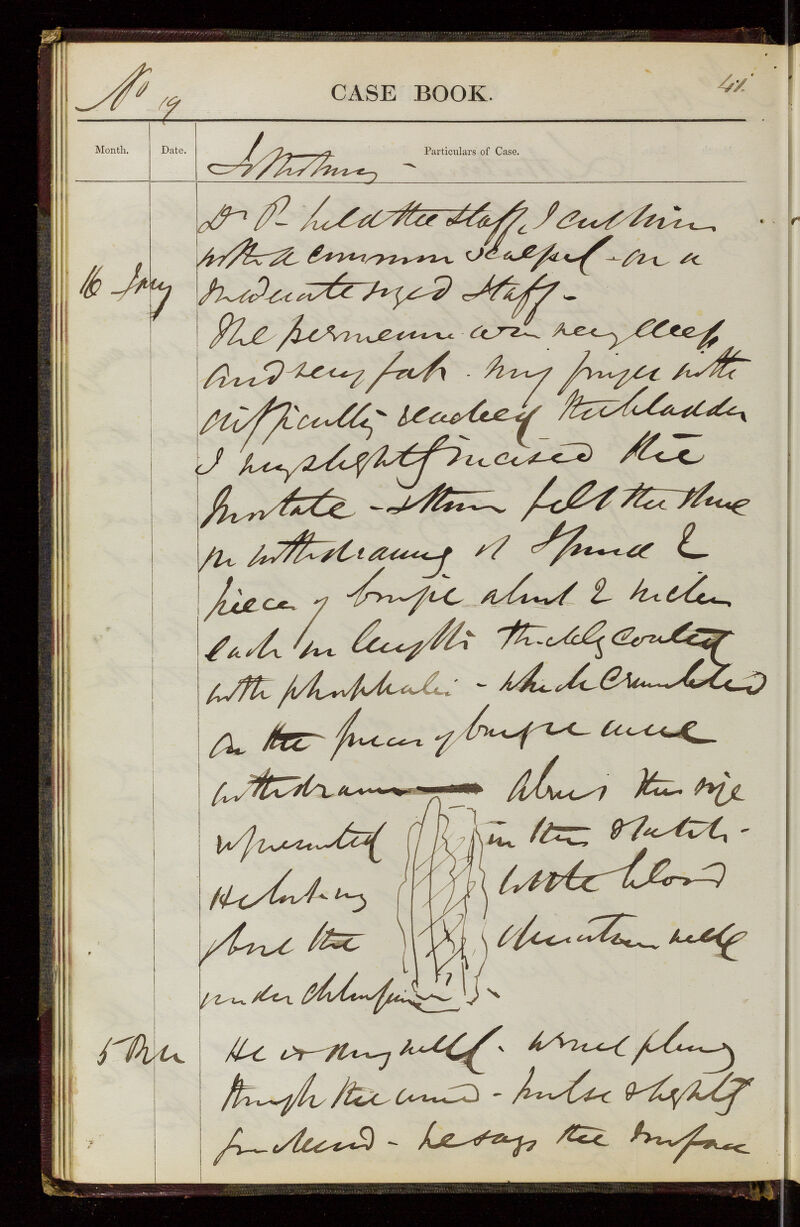 No 19
CASE BOOK.
41.
Month. Date. Particulars of Case.
Lithotomy -
Dr P- held the staff, I cut him
with a common scalpel - on a
16 Jany moderate sized staff -
The perineum was very deep
and very fat. My finger with
difficulty reached the bladder
I very slightly incised the
prostate - & then felt the stone
on withdrawing it I found 2
pieces of bougie about 2 inches
each in length thickly coated
with phosphates - which crumbled
as the pieces of bougie were
withdrawn - about the size
represented in this sketch -
He lost very little blood
& bore the operation well
under chloroform -
5 P.M. He is very well - urine flowing
through the wound - pulse slightly
quickened - he says the surface